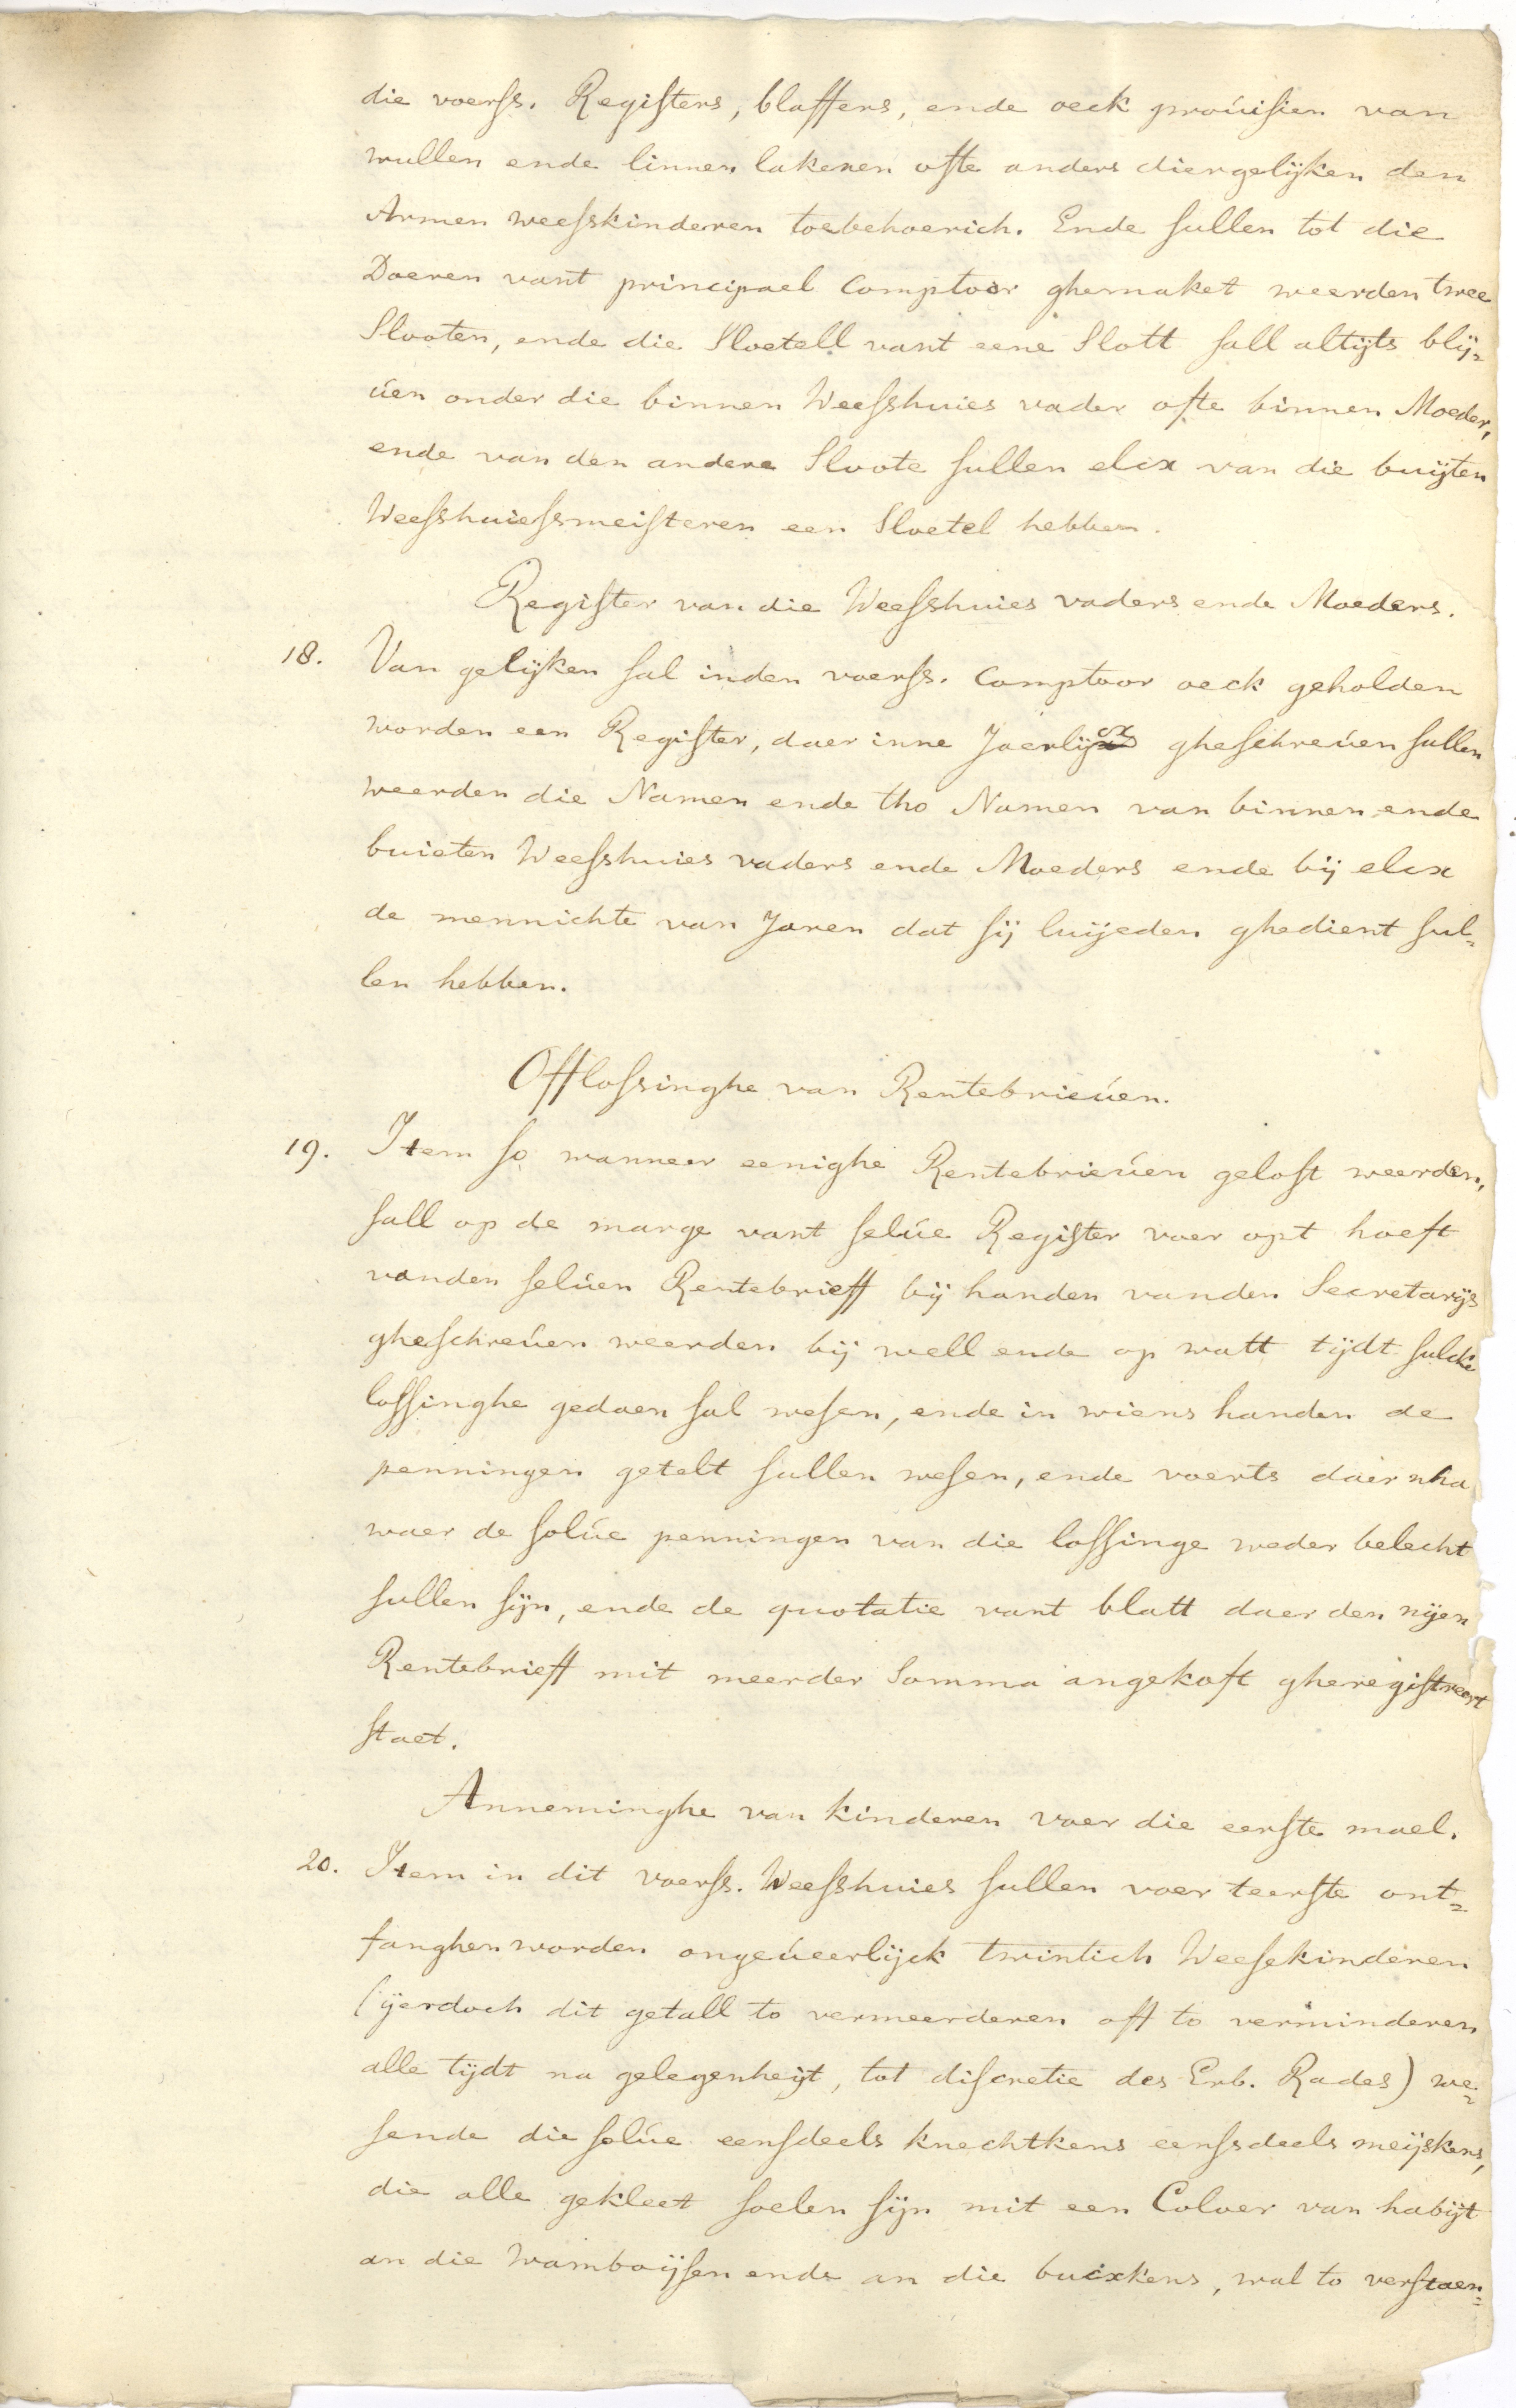 die voerss. Registers, blaffers, ende oeck proúisien van
wullen ende linnen lakenen ofte anders diergelijken den
Armen weesskinderen toebehoerich. Ende sullen tot die
Doeren vant principael Comptoor ghemaket weerden twee
Slooten, ende die Sloetell vant eene Slott sall altijts blij=
úen onder die binnen Weesshuies vader ofte binnen Moeder,
ende van den andere Sloote sullen elcx van die buijten
Weesshuiessmeisteren een Sloetel hebben.
Register van die Weesshuies vaders ende Moeders.
18. Van gelijken sal inden voerss. Comptoor oeck geholden
worden een Register, daer inne Jaerlijcx gheschreúen sullen
weerden die Namen ende tho Namen van binnen ende
buieten Weesshuies vaders ende Moeders ende bij elcx
de mennichte van Jaren dat sij luijeden ghedient sul=
len hebben.
Offlossinghe van Rentebrieúen.
19. Item so wanneer eenighe Rentebrieúen gelost weerden,
sall op de marge vant selúe Register voer opt hoeft
vanden selúen Rentebrieff bij handen vanden Secretarijs
gheschreúen weerden bij well ende op watt tijdt sulcke
lossinghe gedaen sal wesen, ende in wiens handen de
penningen getelt sullen wesen, ende voerts daer nha
waer de solúe penningen van die lossinge weder belecht
sullen sijn, ende de quotatie vant blatt daer den nijen
Rentebrieff mit meerder Somma angekoft gheregistreert
staet.
Anneminghe van kinderen voer die eerste mael.
20. Item in dit voerss. Weesshuies sullen voer teerste ont=
fanghen worden ongeúeerlijck twintich Weesekinderen
(ijerdoch dit getall to vermeerderen off to verminderen
alle tijdt na gelegenheijt, tot discretie des Erb. Rades) we=
sende die solúe eensdeels knechtkens eenssdeels meijskens,
die alle gekleet soelen sijn mit een Coloer van habijt
an die Wamboijsen ende an die buixkens, wal to verstaen=